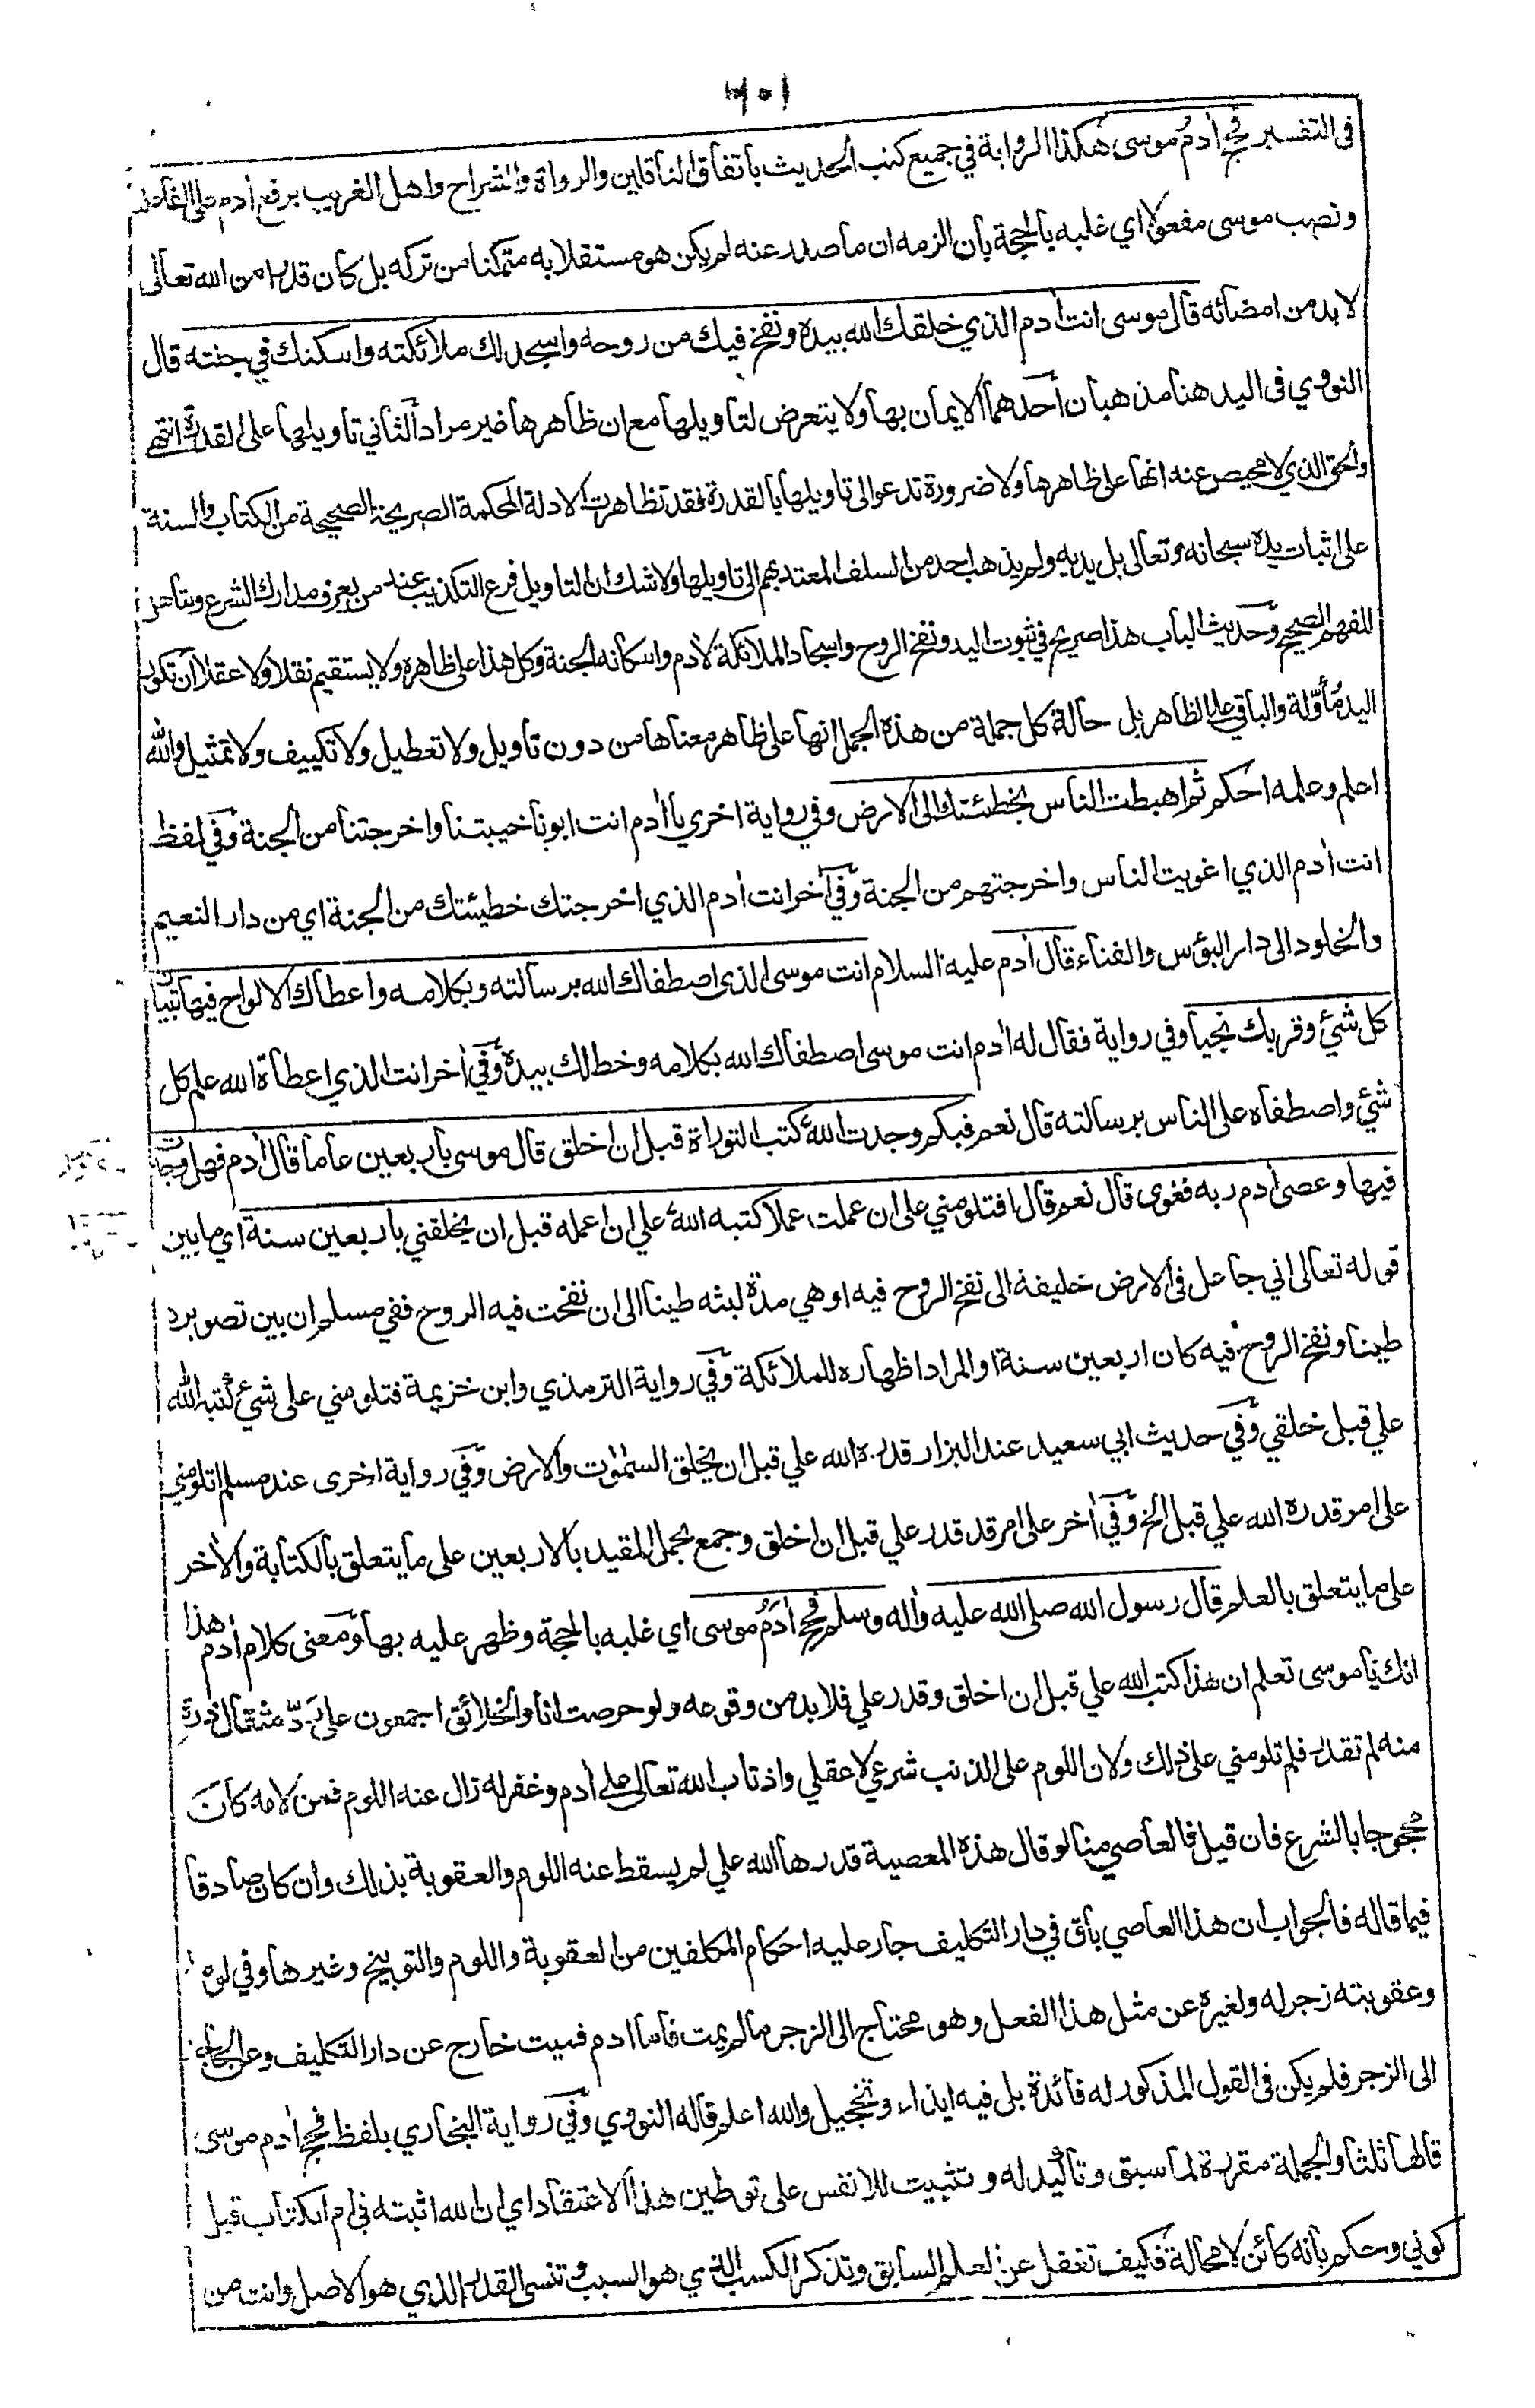 ٦٠١
فى التفسير فحج أدمُ موسى هكذا الرواية في جميع كتب الحديث باتفاق الناقلين والرواة والشراح واهل الغريب برفع أدم على الفاعلية
ونصب موسى مفعولا اي غلبه بالحجة بان الزمه ان ما صدر عنه لم يكن هو مستقلا به متمكنا من تركه بل كان قدرا من الله تعالى
لا بد من امضائه قال موسى انت أدم الذي خلقك الله بيده ونفخ فيك من روحه واسجد لك ملائكته واسكنك في جنته قال
النووي فى اليد هنا مذهبان أحدهما الايمان بها ولا يتعرض لتاويلها مع ان ظاهرها غير مراد الثاني تاويلها على القدرة انتهى
والحق الذي لا محيص عنه انها على ظاهرها ولا ضرورة تدعو الى تاويلها بالقدرة فقد تظاهرت الادلة المحكمة الصريحة الصحيحة من الكتاب والسنة
على اثبات يده سبحانه وتعالى بل يديه ولم يذهب احد من السلف المعتد بهم الى تاويلها ولا شك ان التاويل فرع التكذيب عند من يعرف مدارك الشرع ويتاهل
للفهم الصحيح وحديث الباب هذا صريح في ثبوت اليد ونفخ الروح واسجاد الملائكة لأدم واسكانه الجنة وكل هذا على ظاهره ولا يستقيم نقلا ولا عقلا ان تكون
اليد مُأوّلة والباقي على الظاهر بل حالة كل جملة من هذه الجمل انها على ظاهر معناها من دون تاويل ولا تعطيل ولا تكييف ولا تمثيل والله
اعلم وعلمه احكم ثم اهبطت الناس بخطئتك الى الارض وفي رواية اخرى يا أدم انت ابونا خيبتنا واخرجتنا من الجنة وفي لفظ
انت أدم الذي اغويت الناس واخرجتهم من الجنة وفي أخر انت أدم الذي اخرجتك خطيئتك من الجنة اي من دار النعيم
والخلود الى دار البؤس والفناء قال أدم عليه السلام انت موسى الذي اصطفاك الله برسالته وبكلامه واعطاك الالواح فيها تبيان
كل شئ وقربك نجيا وفي رواية فقال له أدم انت موسى اصطفاك الله بكلامه وخط لك بيده وفي أخر انت الذي اعطاه الله علم كل
شئ واصطفاه على الناس برسالته قال نعم فبكم وجدت اللهَ كتب التوراة قبل ان اخلق قال موسى باربعين عاما قال أدم فهل وجدت
فيها وعصى أدم ربه فغوى قال نعم قال افتلومني على ان عملت عملا كتبه اللهُ علي ان اعمله قبل ان يخلقني باربعين سنة اي ما بين
قوله تعالى اني جاعل فى الارض خليفة الى نفخ الروح فيه او هي مدة لبثه طينا الى ان نفخت فيه الروح ففي مسلم ان بين تصويره
طينا ونفخ الروح فيه كان اربعين سنة او المراد اظهاره للملائكة وفي رواية الترمذي وابن خزيمة فتلومني على شئ كتبه الله
علي قبل خلقي وفي حديث ابي سعيد عند البزار قدره الله علي قبل ان يخلق السمٰوٰت والارض وفي رواية اخرى عند مسلم اتلومني
على امر قدره الله علي قبل الخ وفي أخر على امر قد قدر علي قبل ان اخلق وجمع بحمل المقيد بالاربعين على ما يتعلق بالكتابة والأخر
على ما يتعلق بالعلم قال رسول الله صلى الله عليه وأله وسلم فحج أدمُ موسى اي غلبه بالحجة وظهر عليه بها ومعنى كلام أدم هذا
انك يا موسى تعلم ان هذا كتب الله علي قبل ان اخلق وقدر علي فلا بد من وقوعه ولو حرصت انا والخلائق اجمعون على ردّ مثقال ذرة
منه لم تقدر فلم تلومني على ذلك ولان اللوم على الذنب شرعي لا عقلي واذ تاب الله تعالى على أدم وغفر له زال عنه اللوم فمن لامه كان
محجوجا بالشرع فان قيل فالعاصي منا لو قال هذه المعصية قدرها الله علي لم يسقط عنه اللوم والعقوبة بذلك وان كان صادقا
فيما قاله فالجواب ان هذا العاصي باق في دار التكليف جار عليه احكام المكلفين من العقوبة واللوم والتوبيخ وغيرها وفي لومه
وعقوبته زجر له ولغيره عن مثل هذا الفعل وهو محتاج الى الزجر ما لم يمت فاما أدم فميت خارج عن دار التكليف وعن الحاجة
الى الزجر فلم يكن فى القول المذكور له فائدة بل فيه ايذاء وتخجيل والله اعلم قاله النووي وفي رواية البخاري بلفظ فحج أدم موسى
قالها ثلثا والجملة مقررة لما سبق وتاكيد له وتثبيت للانفس على توطين هذا الاعتقاد اي ان الله اثبته في ام الكتاب قبل
كوني وحكم بانه كائن لا محالة فكيف تغفل عن العلم السابق وتذكر الكسب الذي هو السبب وتنسى القدر الذي هو الاصل وانت من